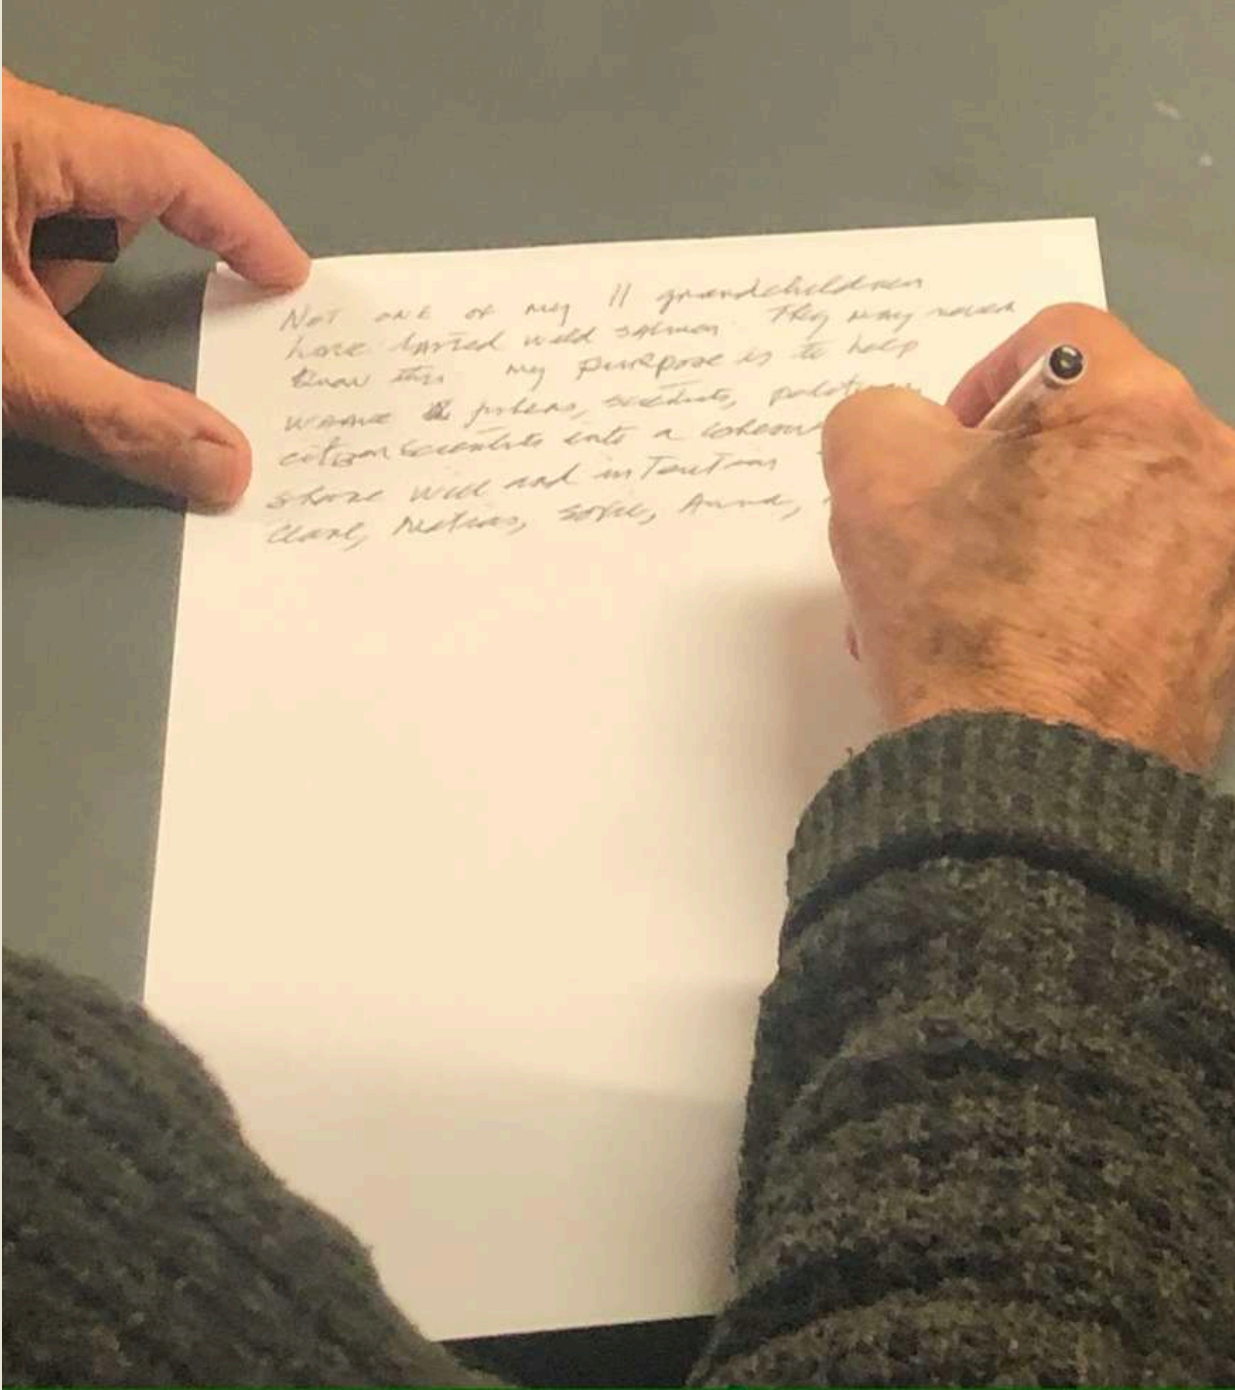 Not one of my 11 grandchildren
have tasted wild salmon. They may never
know this. My purpose is to help
weave fishers, scientists,
citizen scientists into a
share will and intention
Clare, Matias, Sofie, Anna,